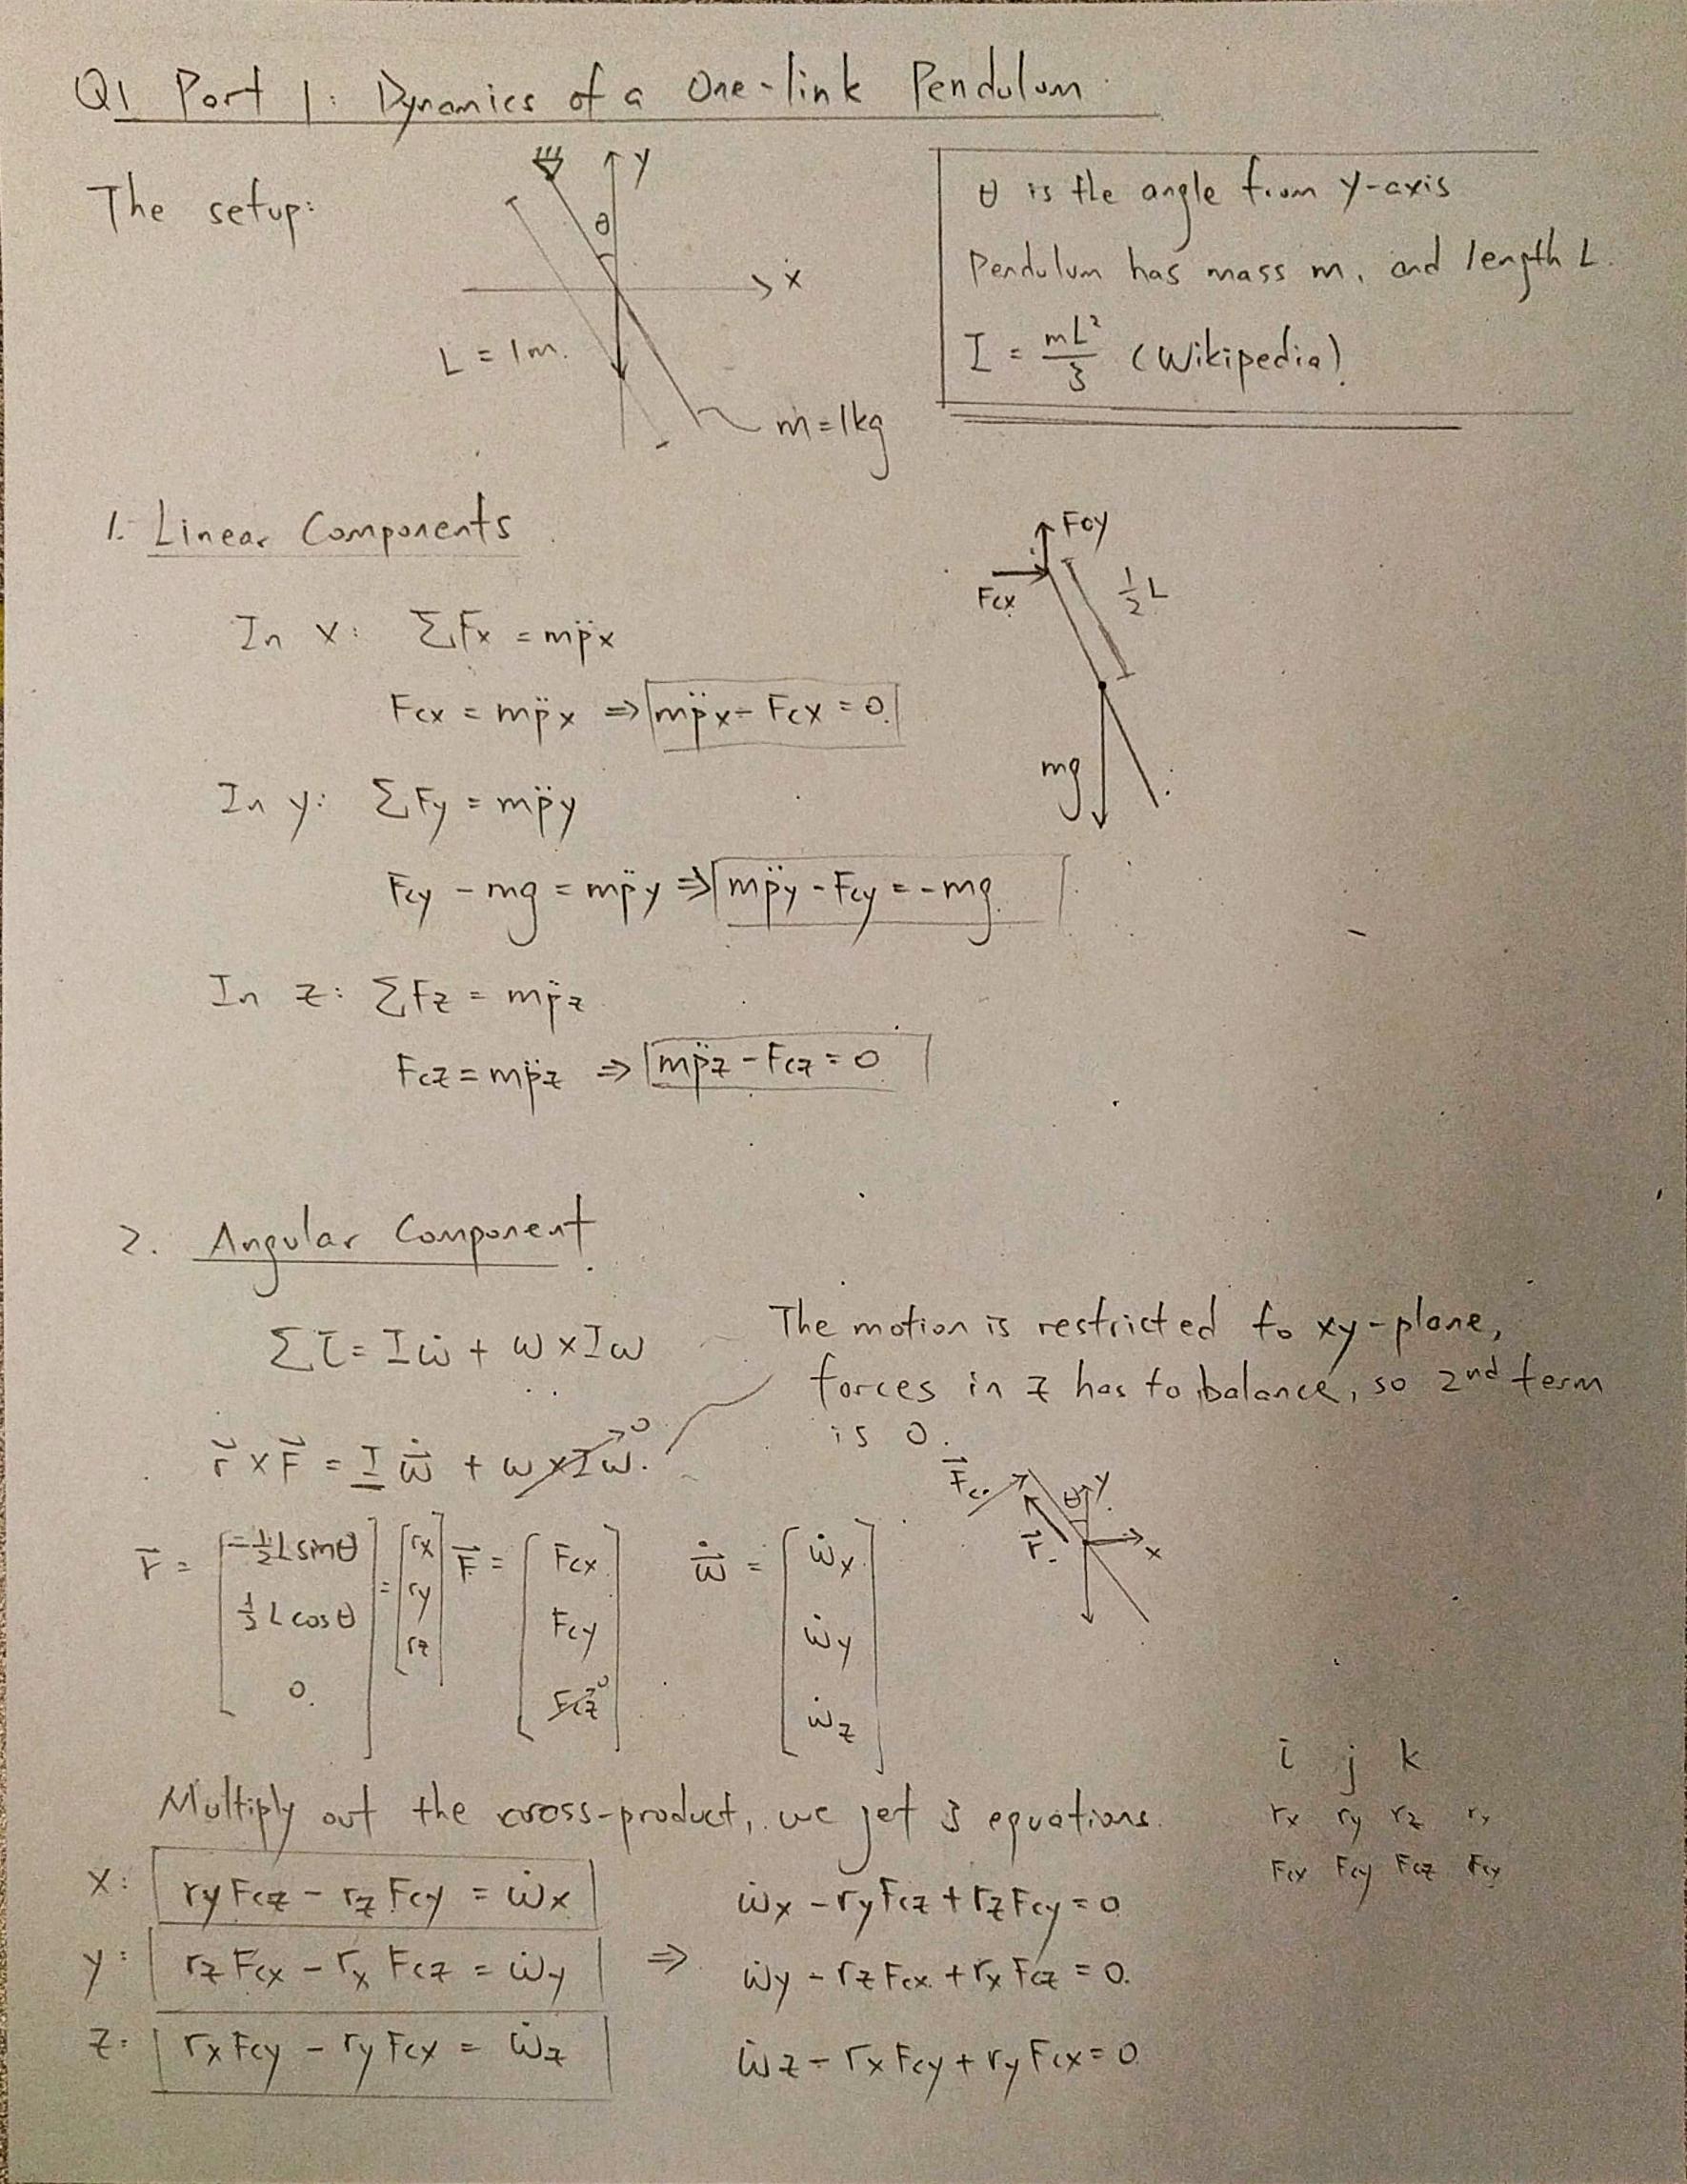 Q1 Part 1: Dynamics of a One-link Pendulum
The setup:
y
θ
x
L = 1m.
m = 1kg
θ is the angle from y-axis
Pendulum has mass m, and length L.
I = mL²/3 (Wikipedia)
1. Linear Components
Fcy
Fcx
½L
mg
In x: ΣFx = mp̈x
Fcx = mp̈x ⇒ mp̈x - Fcx = 0.
In y: ΣFy = mp̈y
Fcy - mg = mp̈y ⇒ mp̈y - Fcy = -mg.
In z: ΣFz = mp̈z
Fcz = mp̈z ⇒ mp̈z - Fcz = 0
2. Angular Component
Στ = Iω̇ + ω×Iω
The motion is restricted to xy-plane,
forces in z has to balance, so 2nd term
is 0.
r⃗ × F⃗ = I ω̇ + ω×Iω. → 0
F⃗c
θ
y
x
r⃗
r⃗ = [-½L sinθ, ½L cosθ, 0.] = [rx, ry, rz] F⃗ = [Fcx, Fcy, Fcz 0] ω̇ = [ω̇x, ω̇y, ω̇z]
i j k
rx ry rz
Fcx Fcy Fcz Fcy
Multiply out the cross-product, we get 3 equations.
x: ryFcz - rzFcy = ω̇x
ω̇x - ryFcz + rzFcy = 0
y: rzFcx - rxFcz = ω̇y ⇒ ω̇y - rzFcx + rxFcz = 0.
z: rxFcy - ryFcx = ω̇z
ω̇z - rxFcy + ryFcx = 0